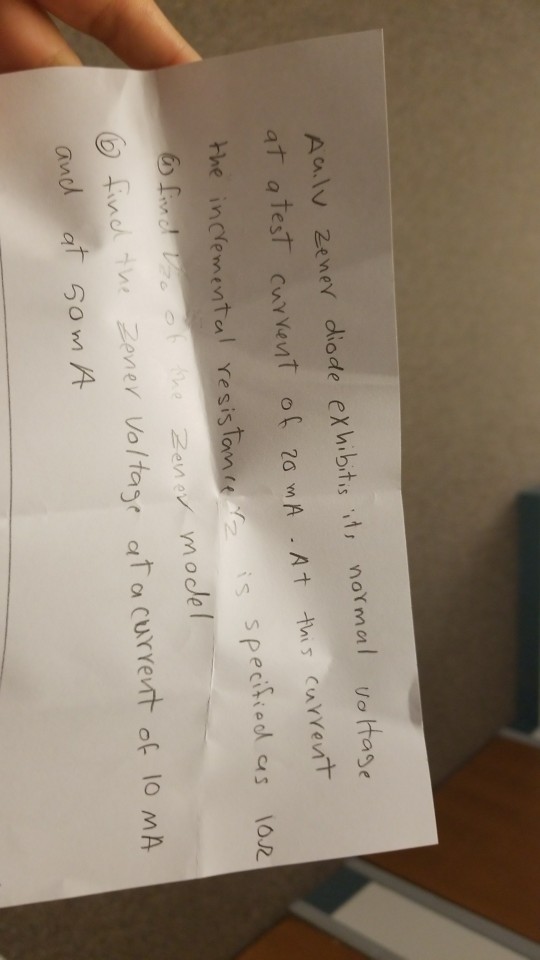 A 9.1v zener diode exhibitis its normal voltage
at a test current of 20 mA. At this current
the incremental resistance rz is specified as 10Ω
ⓐ find Vzo of the Zener model
ⓑ find the Zener Voltage at a current of 10 MA
and at 50mA